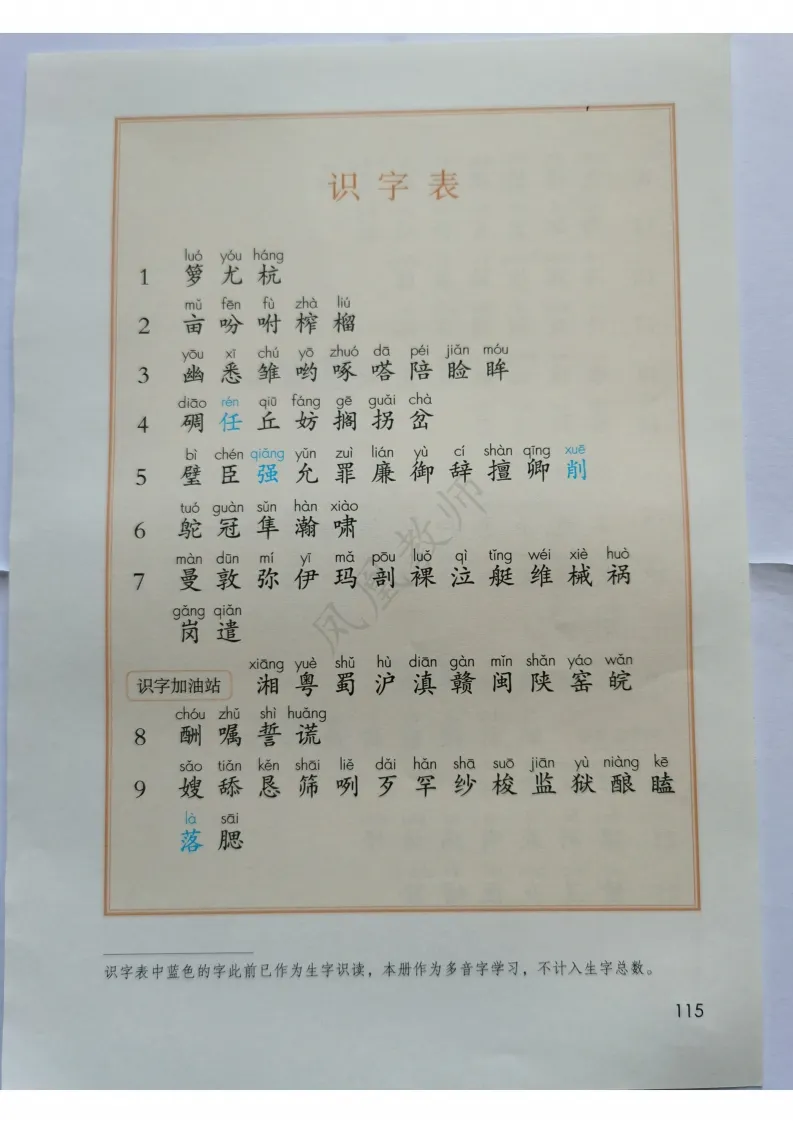 识字表
luó yóu háng
1 箩 尤 杭
mǔ fēn fù zhà liú
2 亩 吩 咐 榨 榴
yōu xī chú yō zhuó dā péi jiǎn móu
3 幽 悉 雏 哟 啄 嗒 陪 睑 眸
diāo rén qiū fáng gē guǎi chà
4 碉 任 丘 妨 搁 拐 岔
bì chén qiǎng yǔn zuì lián yù cí shàn qīng xuē
5 璧 臣 强 允 罪 廉 御 辞 擅 卿 削
tuó guàn sǔn hàn xiào
6 鸵 冠 隼 瀚 啸
màn dūn mí yī mǎ pōu luǒ qì tǐng wéi xiè huò
7 曼 敦 弥 伊 玛 剖 裸 泣 艇 维 械 祸
gǎng qiǎn
岗 遣
xiāng yuè shǔ hù diān gàn mǐn shǎn yáo wǎn
识字加油站 湘 粤 蜀 沪 滇 赣 闽 陕 窑 皖
chóu zhǔ shì huǎng
8 酬 嘱 誓 谎
sǎo tiǎn kěn shāi liě dǎi hǎn shā suō jiān yù niàng kē
9 嫂 舔 恳 筛 咧 歹 罕 纱 梭 监 狱 酿 瞌
là sāi
落 腮
识字表中蓝色的字此前已作为生字识读，本册作为多音字学习，不计入生字总数。
115
凤凰教师